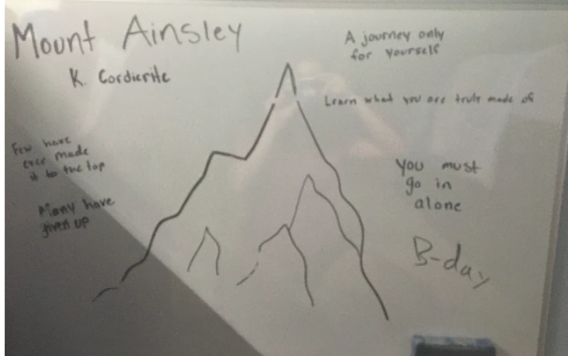 Mount Ainsley
K. Cordierite
A journey only
for yourself
Learn what you are truly made of
Few have
ever made
it to the top
Many have
given up
You must
go in
alone
B-day